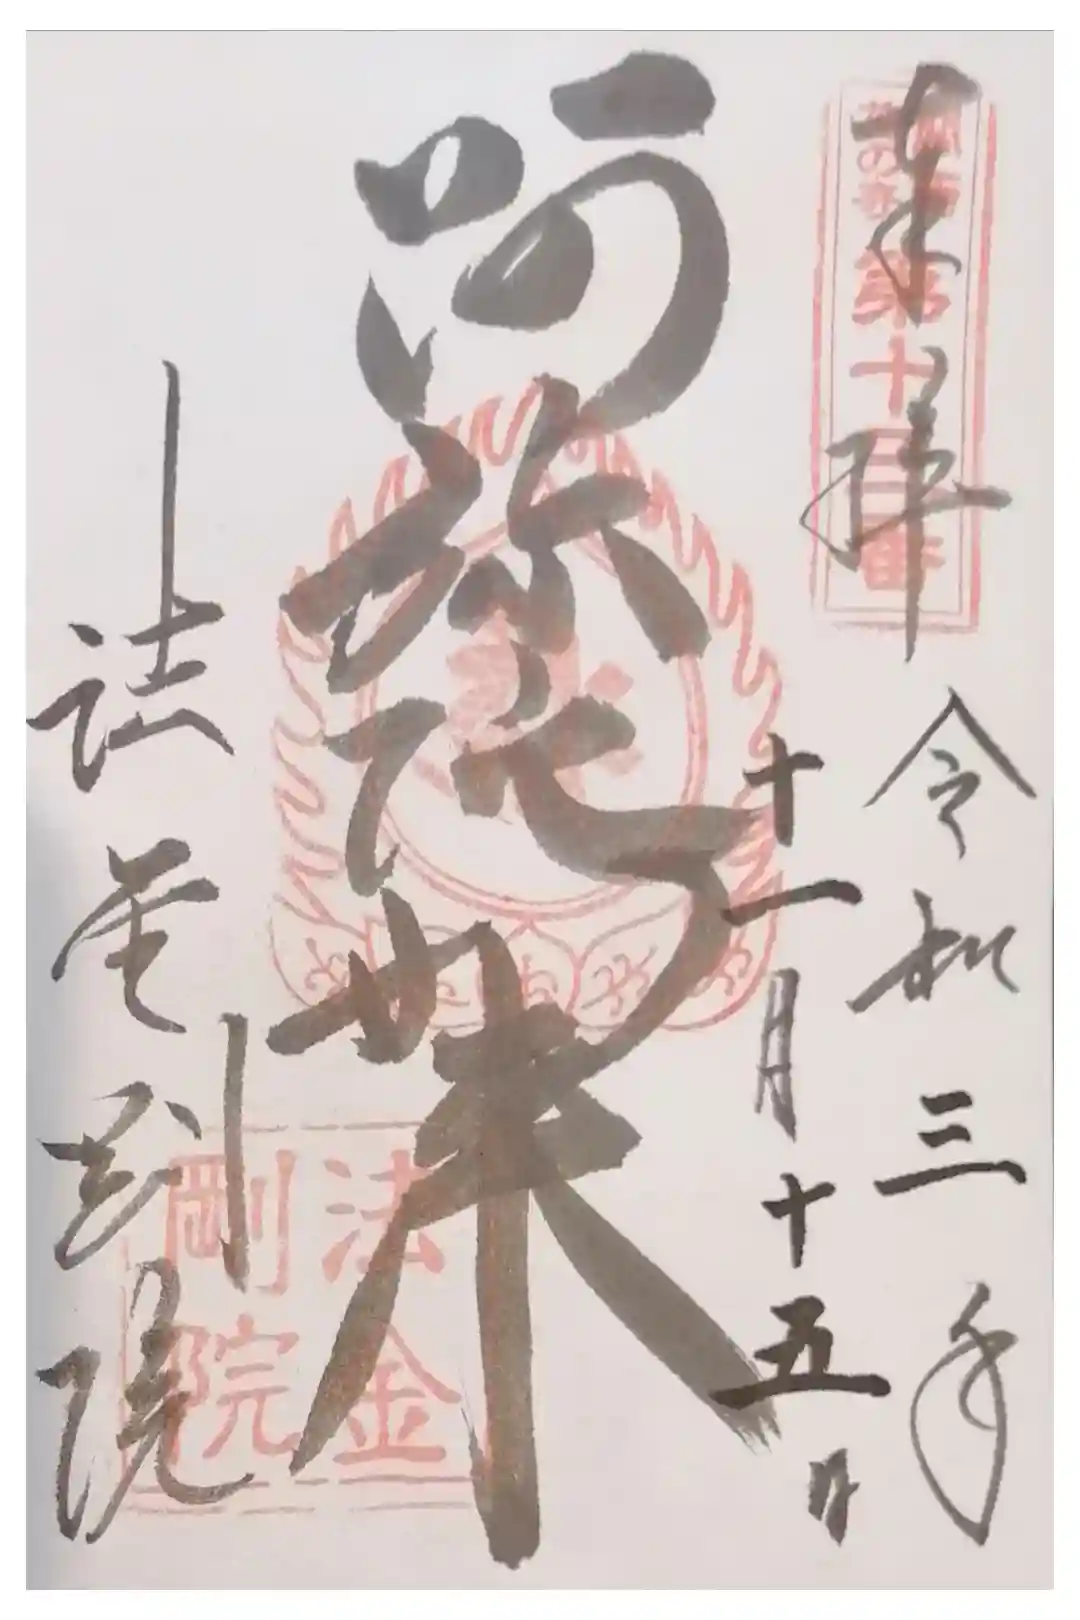 奉拝
関西花の寺
第十三番
令和三年
十一月十五日
阿弥陀如来
法金剛院
法金剛院